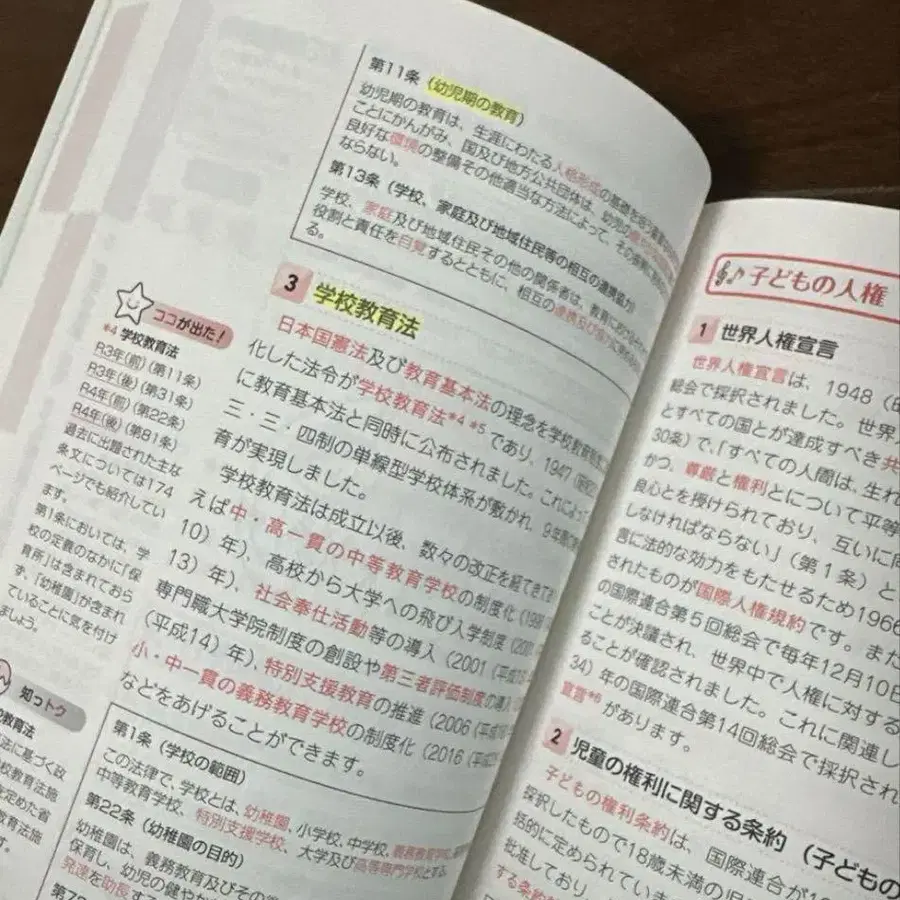 第11条（幼児期の教育）
幼児期の教育は、生涯にわたる人格形成の基礎を
ことにかんがみ、国及び地方公共団体は、幼児の
良好な環境の整備その他適当な方法によって、その
ならない。
第13条（学校、家庭及び地域住民等の相互の連携協力）
学校、家庭及び地域住民その他の関係者は、教育に
役割と責任を自覚するとともに、相互の連携及び協力に
る。
3 学校教育法
日本国憲法及び教育基本法の理念を学校教育制度
化した法令が学校教育法*4 *5であり、1947（昭和
に教育基本法と同時に公布されました。これによって
三・三・四制の単線型学校体系が敷かれ、9年
育が実現しました。
学校教育法は成立以後、数々の改正を経てきて
えば中・高一貫の中等教育学校の制度化（1998
10）年）、高校から大学への飛び入学制度（2001
13）年）、社会奉仕活動等の導入（2001（平成13
専門職大学院制度の創設や第三者評価制度の導入
（平成14）年）、特別支援教育の推進（2006（平成18
小・中一貫の義務教育学校の制度化（2016（平成
などをあげることができます。
第1条（学校の範囲）
この法律で、学校とは、幼稚園、小学校、中学校、義務教育学校、
中等教育学校、特別支援学校、大学及び高等専門学校とする。
第22条（幼稚園の目的）
幼稚園は、義務教育及びその
保育し、幼児の健やか
発達を助長する
ココが出た！
*4 学校教育法
R3年（前）（第11条）
R3年（後）（第31条）
R4年（前）（第22条）
R4年（後）（第81条）
過去に出題された主な
条文については174
ページでも紹介してい
ます。
第1条においては、学
校の定義のなかに「保
育所」は含まれておら
ず、「幼稚園」が含まれ
ていることに気を付け
ましょう。
知っトク
教育法
法に基づく政
学校教育法施
を定めた省
教育法施
す。
子どもの人権
1 世界人権宣言
世界人権宣言は、1948（昭
総会で採択されました。世界人
とすべての国とが達成すべき共
30条）で、「すべての人間は、生れ
かつ、尊厳と権利とについて平等
良心とを授けられており、互いに同
しなければならない」（第1条）と
言に法的な効力をもたせるため1966
されたものが国際人権規約です。また
の国際連合第5回総会で毎年12月10日
ことが決議され、世界中で人権に対する
ることが確認されました。これに関連し
34）年の国際連合第14回総会で採択され
宣言*6があります。
2 児童の権利に関する条約（子どもの
子どもの権利条約は、国際連合が
採択したもので18歳未満の児
括的に定められていま
批准しており、
する条約